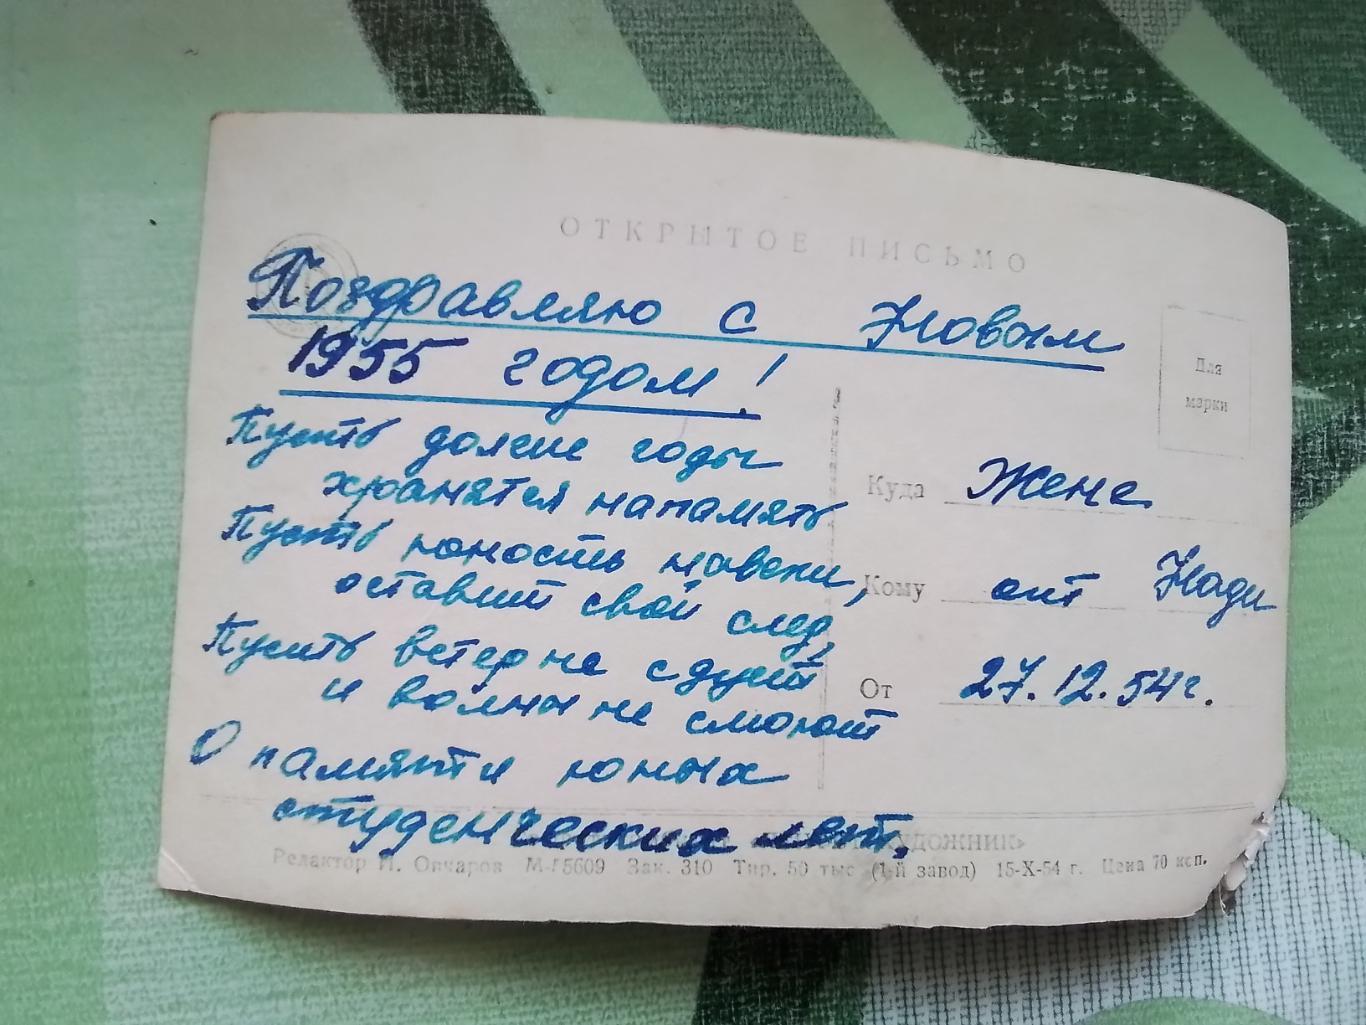 ОТКРЫТОЕ ПИСЬМО
Поздравляю с Новым
1955 годом!
Пусть долгие годы
хранятся на память
Пусть юность навеки,
оставит свой след,
Пусть ветер не сдует
и волны не смоют
О памяти юных
студенческих лет.
Для
марки
Куда Жене
Кому от Нади
От 27.12.54г.
ХУДОЖНИК»
Редактор И. Овчаров М-15609 Зак. 310 Тир. 50 тыс (1-й завод) 15-X-54 г. Цена 70 коп.